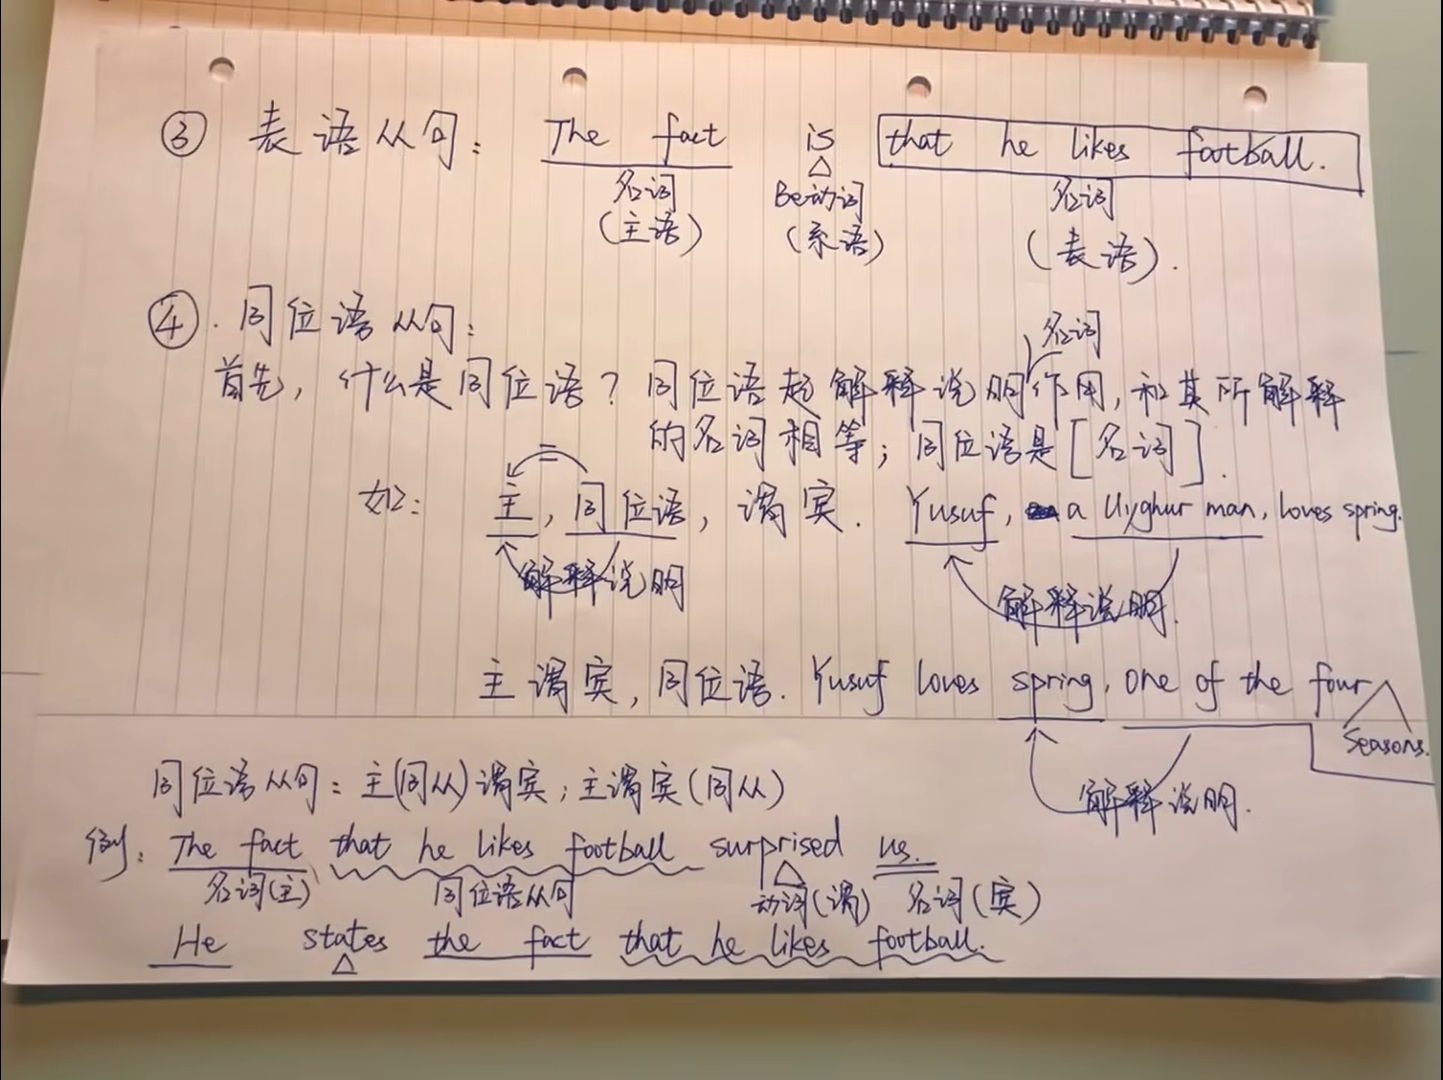 ③ 表语从句： The fact is that he likes football.
名词 Be动词 名词
（主语） （系语） （表语）.
④. 同位语从句：
名词
首先，什么是同位语？同位语起解释说明作用，和其所解释
的名词相等；同位语是[名词].
=
如： 主，同位语，谓宾. Yusuf, a Uyghur man, loves spring.
解释说明 解释说明.
主谓宾，同位语. Yusuf loves spring, one of the four
seasons.
解释说明.
同位语从句：主(同从)谓宾；主谓宾(同从)
例： The fact that he likes football surprised us.
名词(主) 同位语从句 动词(谓) 名词(宾)
He states the fact that he likes football.